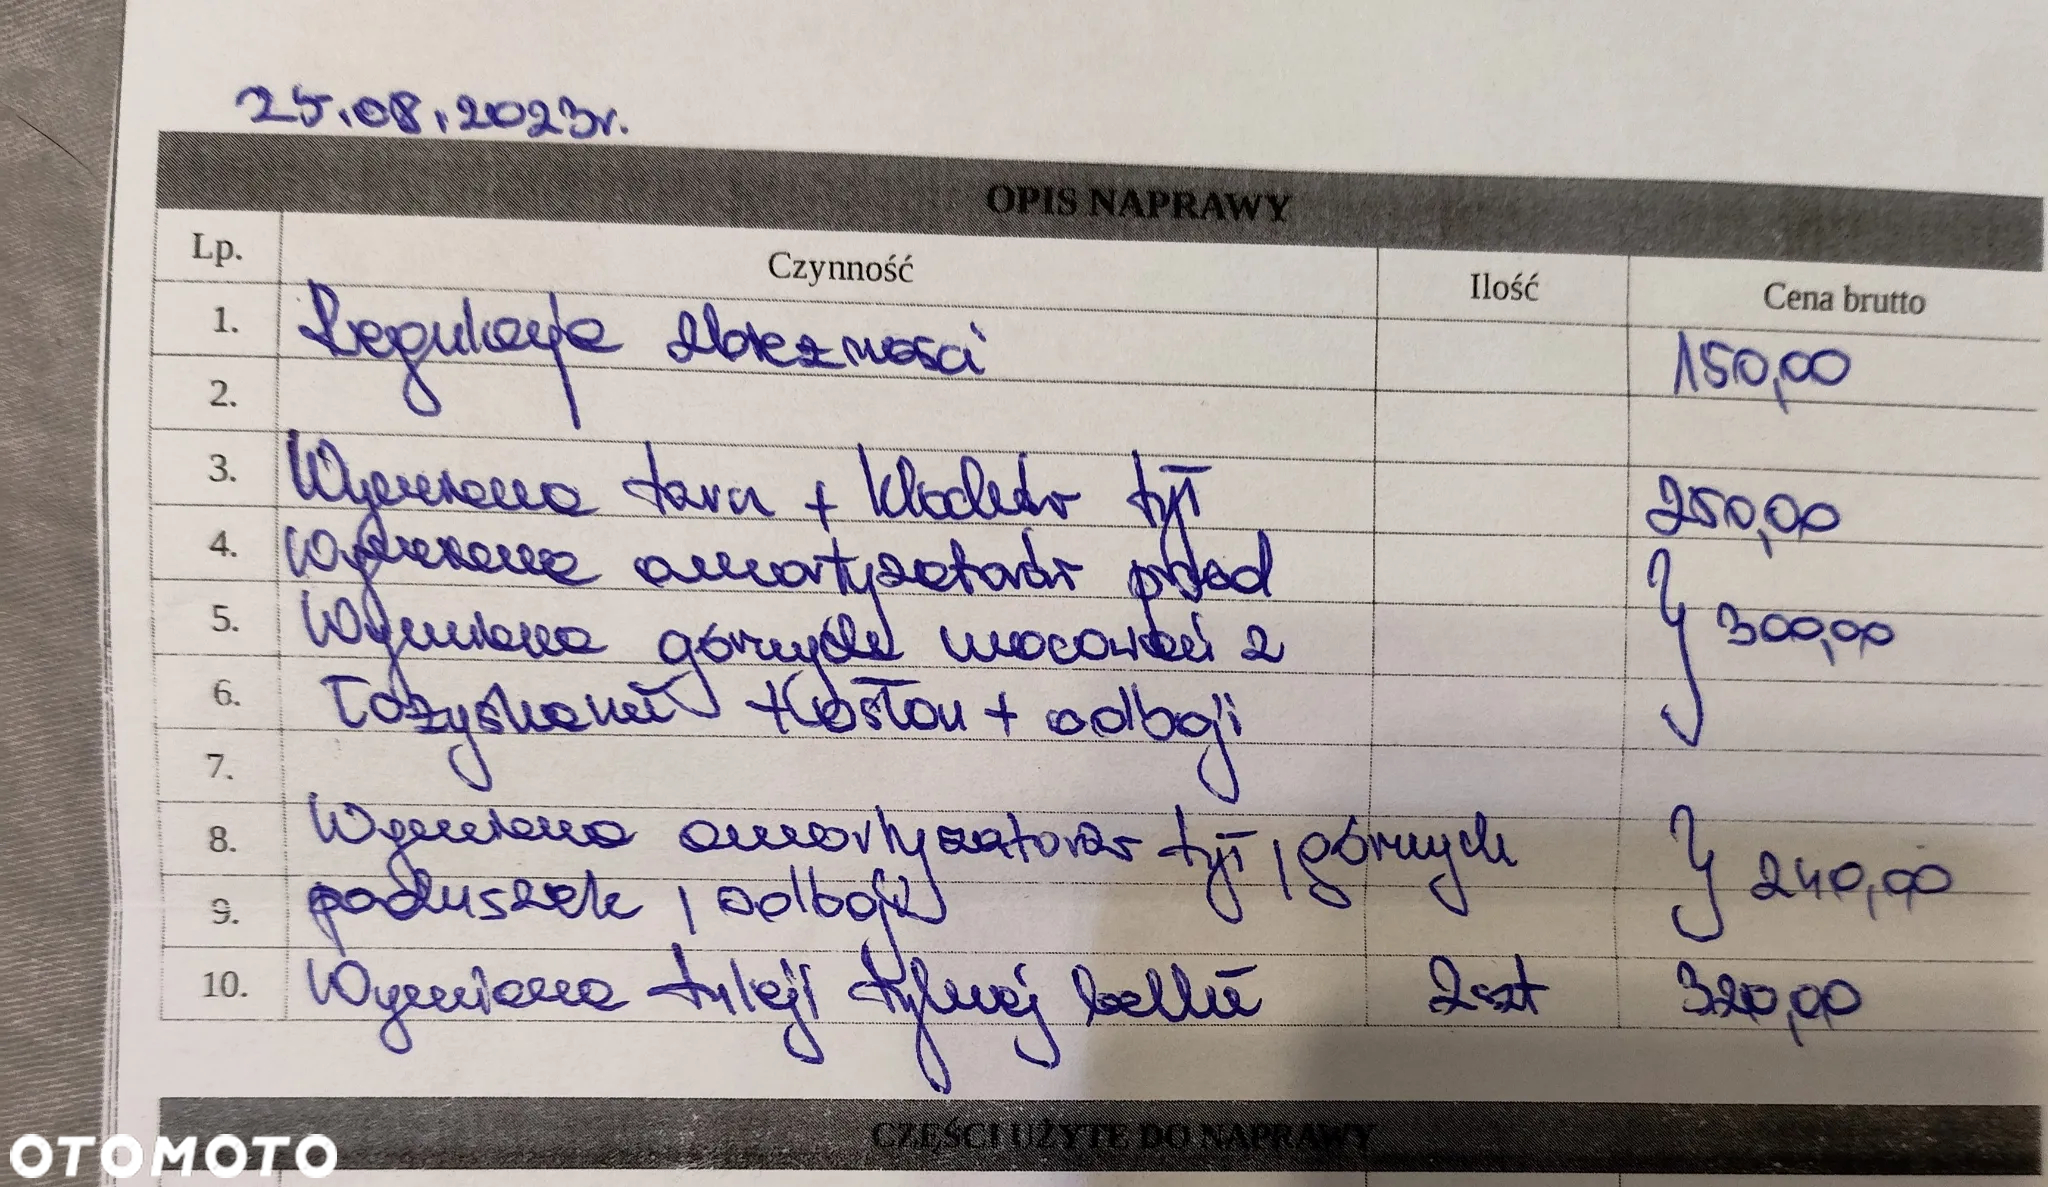 25.08.2023r.
OPIS NAPRAWY
Lp. Czynność Ilość Cena brutto
1. Regulacja zbieżności 150,00
2.
3. Wymiana tarcz + klocków tył 250,00
4. Wymiana amortyzatorów przód
5. Wymiana górnych mocowań z } 300,00
6. łożyskami + osłon + odboji
7.
8. Wymiana amortyzatorów tył, górnych
9. poduszek, odboji } 240,00
10. Wymiana tuleji tylnej belki 2szt 320,00
CZĘŚCI UŻYTE DO NAPRAWY
OTOMOTO